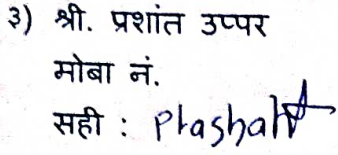 ३) श्री. प्रशांत उप्पर
मोबा नं.
सही : Prashant